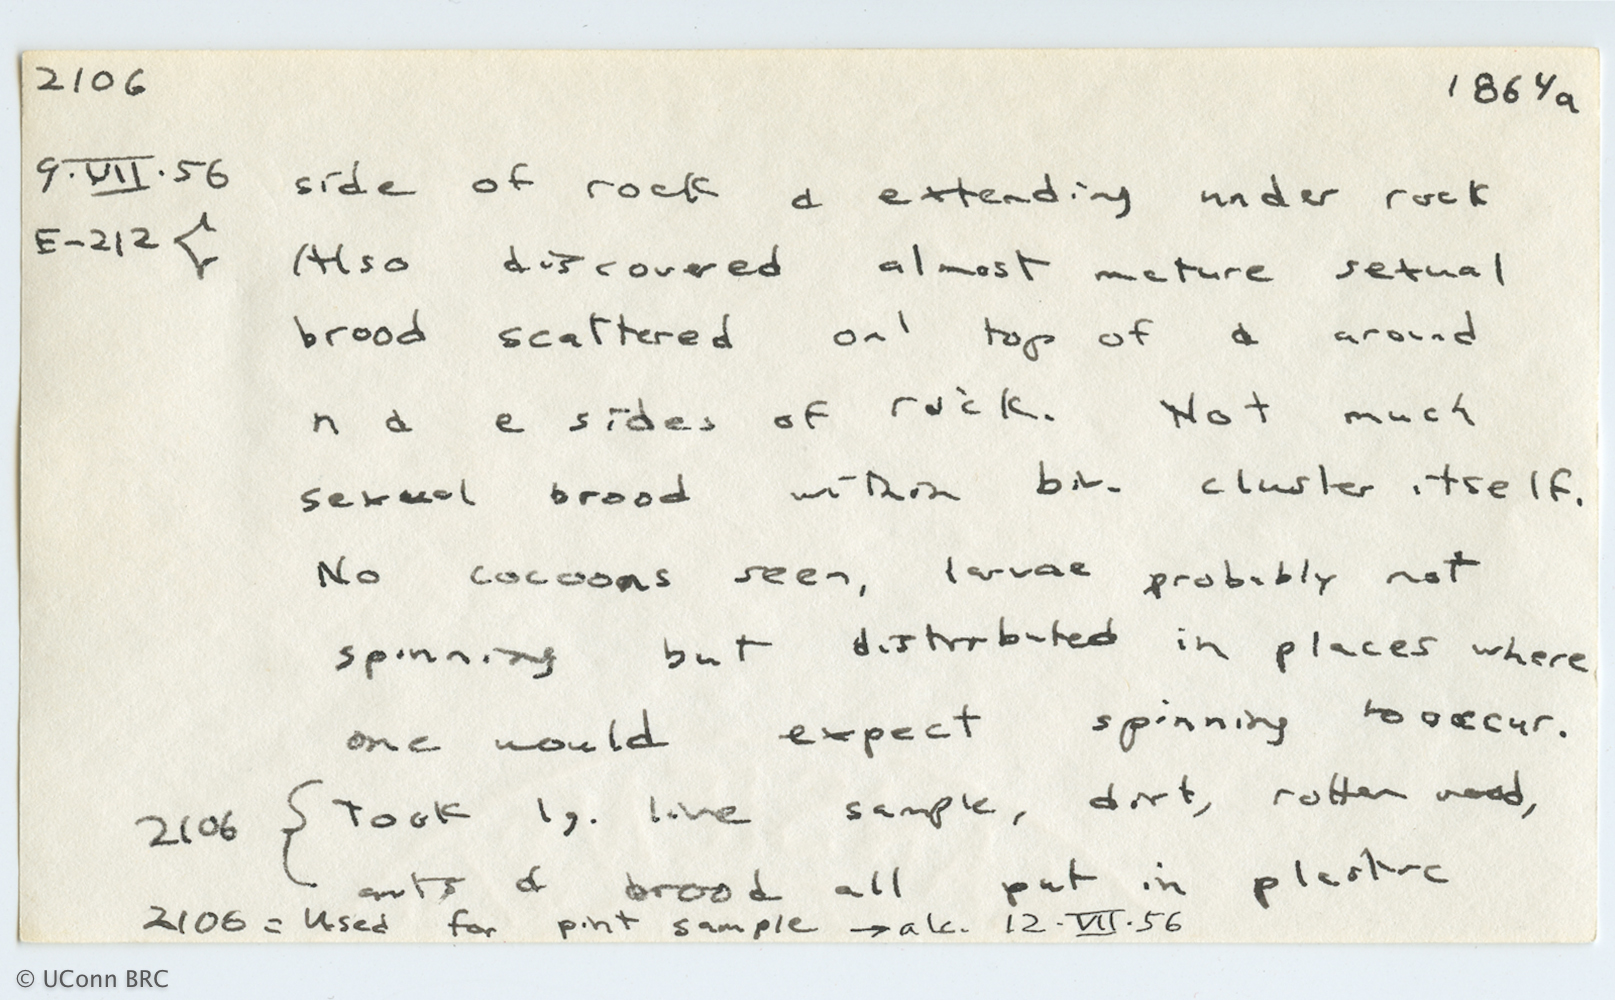 2106 1864a
9·VII·56 side of rock & extending under rock
E-212 { Also discovered almost mature sexual
brood scattered on top of & around
n & e sides of rock. Not much
sexual brood within biv. cluster itself.
No cocoons seen, larvae probably not
spinning but distributed in places where
one would expect spinning to occur.
2106 { Took lg. live sample, dirt, rotten wood,
ants & brood all put in plastic
2106 = Used for pint sample → alc. 12·VII·56
© UConn BRC